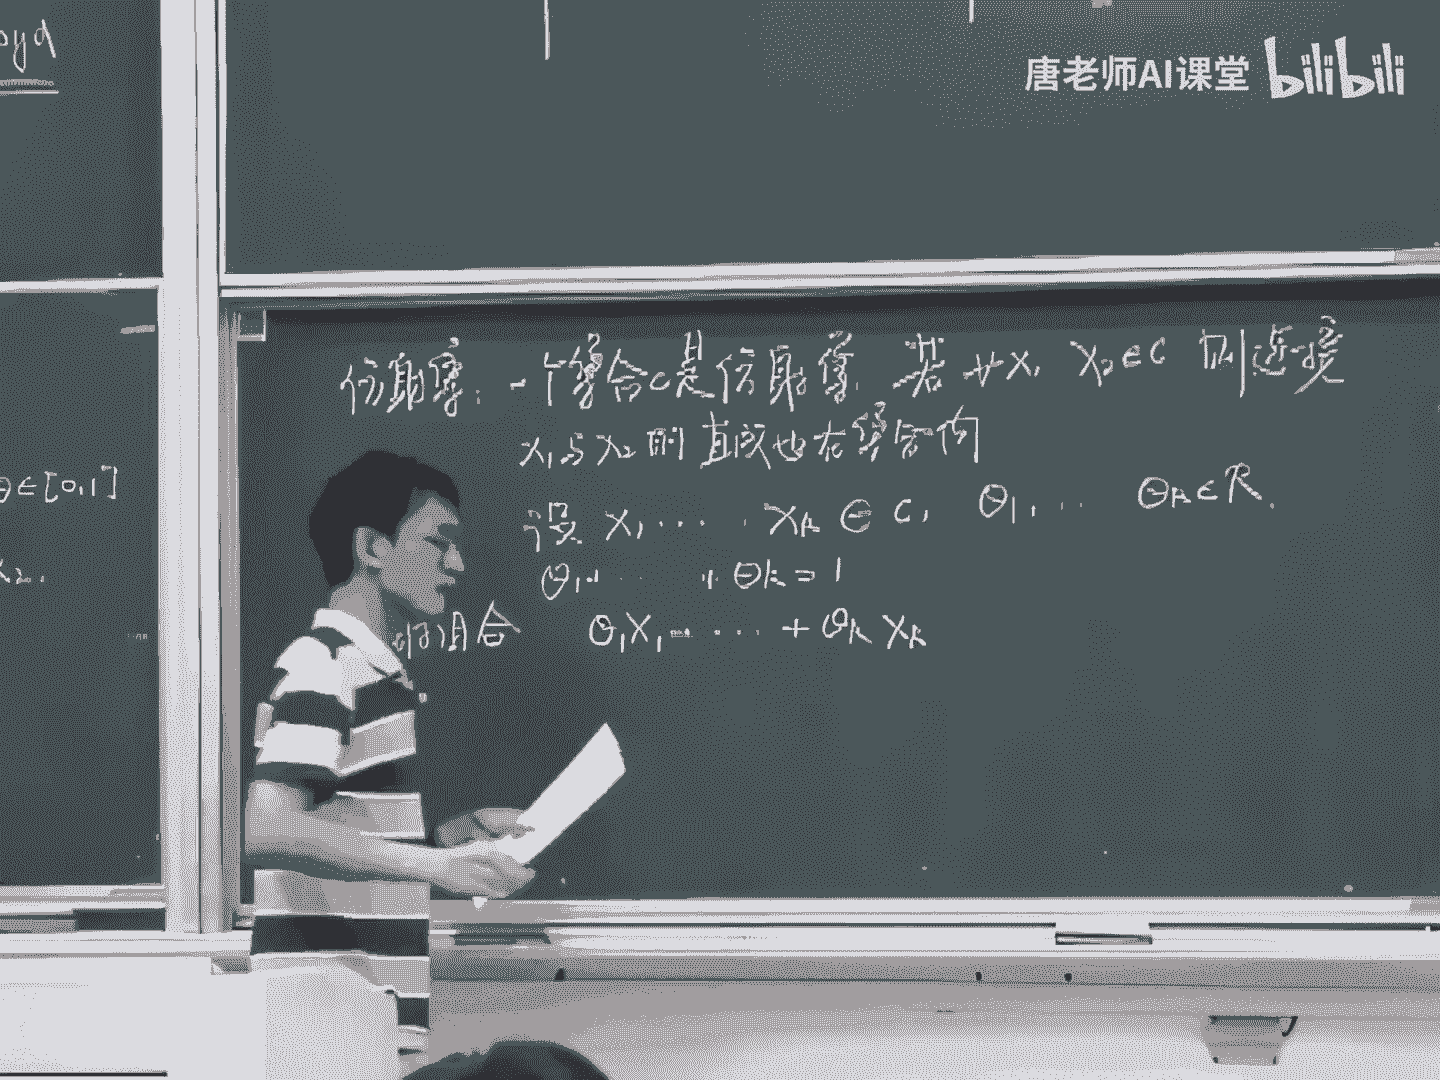 oyd
唐老师AI课堂 bilibili
θ∈[0,1]
x₂.
仿射集: 一个集合C是仿射集, 若∀x₁ x₂∈C 则连接
x₁与x₂的直线也在集合内
设 x₁ ... x_k ∈ C, θ₁, ... θ_k∈R.
θ₁+ ... + θ_k = 1
组合 θ₁x₁ ... + θ_k x_k